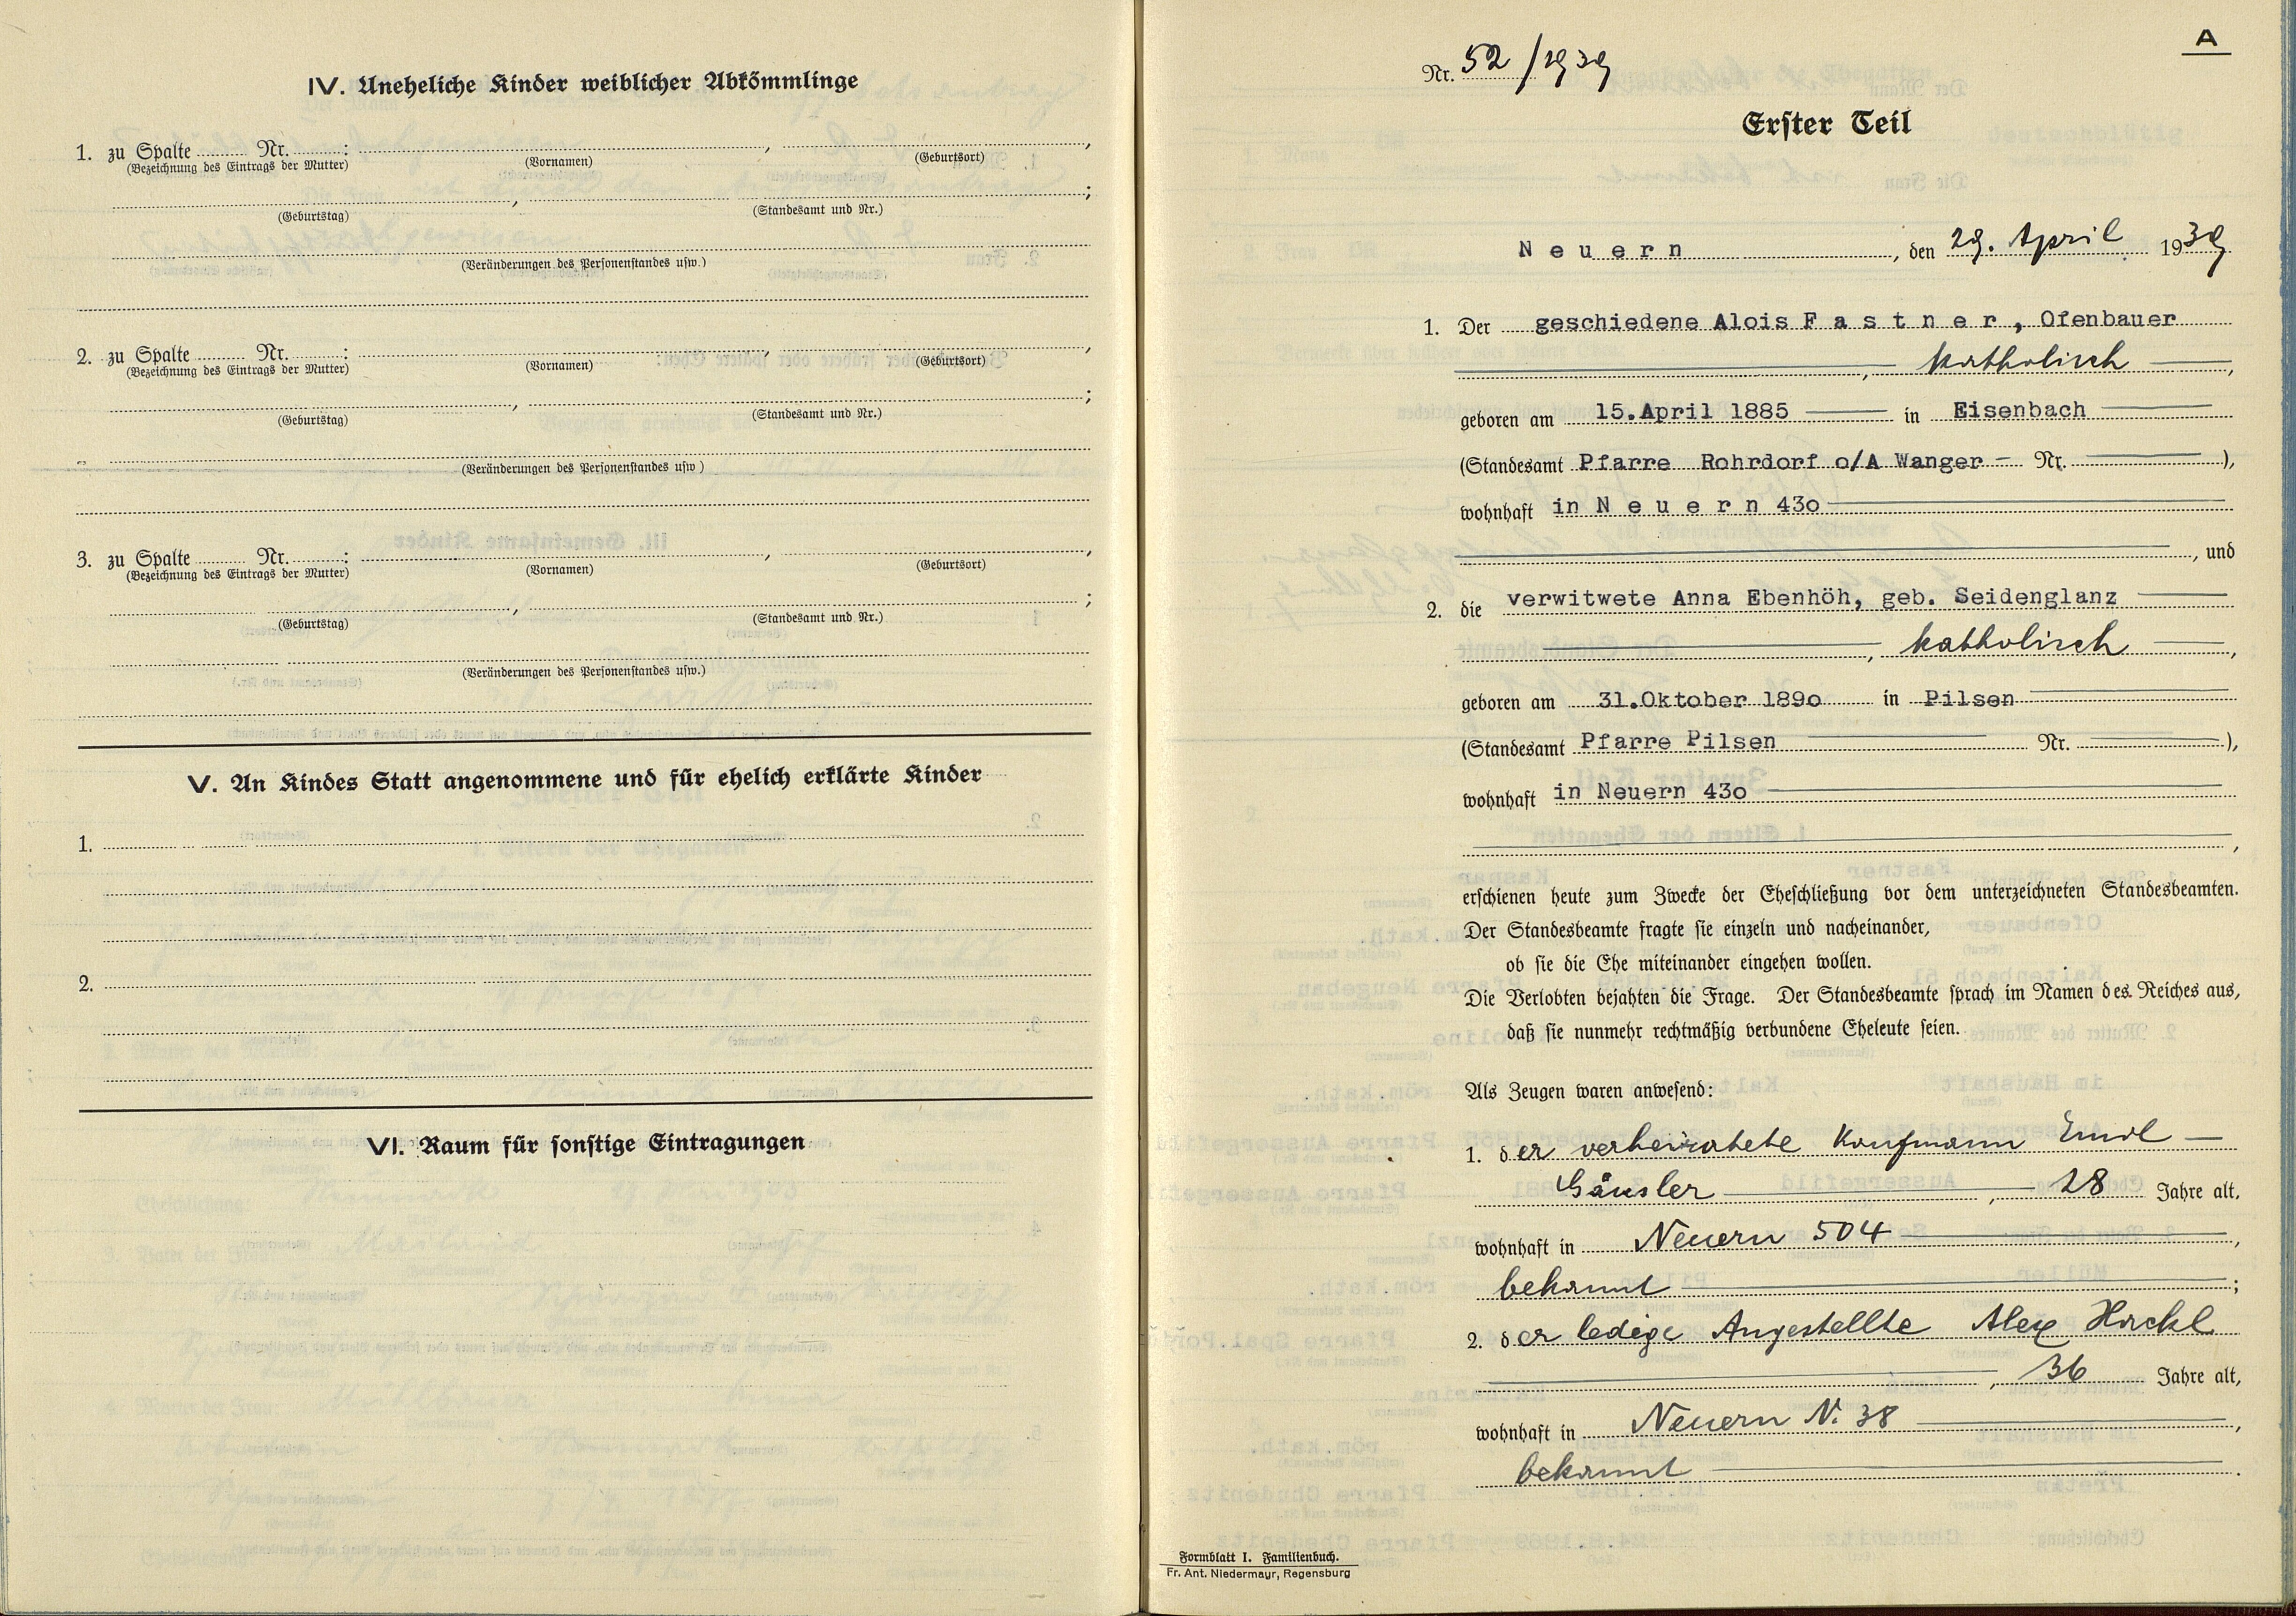 IV. Uneheliche Kinder weiblicher Abkömmlinge
1. zu Spalte Nr. : , ,
(Bezeichnung des Eintrags der Mutter) (Vornamen) (Geburtsort)
, ;
(Geburtstag) (Standesamt und Nr.)
(Veränderungen des Personenstandes usw.)
2. zu Spalte Nr. : , ,
(Bezeichnung des Eintrags der Mutter) (Vornamen) (Geburtsort)
, ;
(Geburtstag) (Standesamt und Nr.)
(Veränderungen des Personenstandes usw)
3. zu Spalte Nr. : , ,
(Bezeichnung des Eintrags der Mutter) (Vornamen) (Geburtsort)
, ;
(Geburtstag) (Standesamt und Nr.)
(Veränderungen des Personenstandes usw.)
V. An Kindes Statt angenommene und für ehelich erklärte Kinder
1.
2.
VI. Raum für sonstige Eintragungen
A
Nr. 52/1939
Erster Teil
Neuern, den 29. April 1939
1. Der geschiedene Alois Fastner, Ofenbauer
, katholisch ,
geboren am 15.April 1885 in Eisenbach
(Standesamt Pfarre Rohrdorf o/A Wanger - Nr. ),
wohnhaft in Neuern 43o
, und
2. die verwitwete Anna Ebenhöh, geb. Seidenglanz
, katholisch ,
geboren am 31.Oktober 189o in Pilsen
(Standesamt Pfarre Pilsen Nr. ),
wohnhaft in Neuern 43o
,
erschienen heute zum Zwecke der Eheschließung vor dem unterzeichneten Standesbeamten.
Der Standesbeamte fragte sie einzeln und nacheinander,
ob sie die Ehe miteinander eingehen wollen.
Die Verlobten bejahten die Frage. Der Standesbeamte sprach im Namen des Reiches aus,
daß sie nunmehr rechtmäßig verbundene Eheleute seien.
Als Zeugen waren anwesend:
1. der verheiratete Kaufmann Emil
Gänsler , 28 Jahre alt,
wohnhaft in Neuern 504 ,
bekannt ;
2. der ledige Angestellte Alex Hackl
, 36 Jahre alt,
wohnhaft in Neuern N. 38 ,
bekannt .
Formblatt I. Familienbuch.
Fr. Ant. Niedermayr, Regensburg